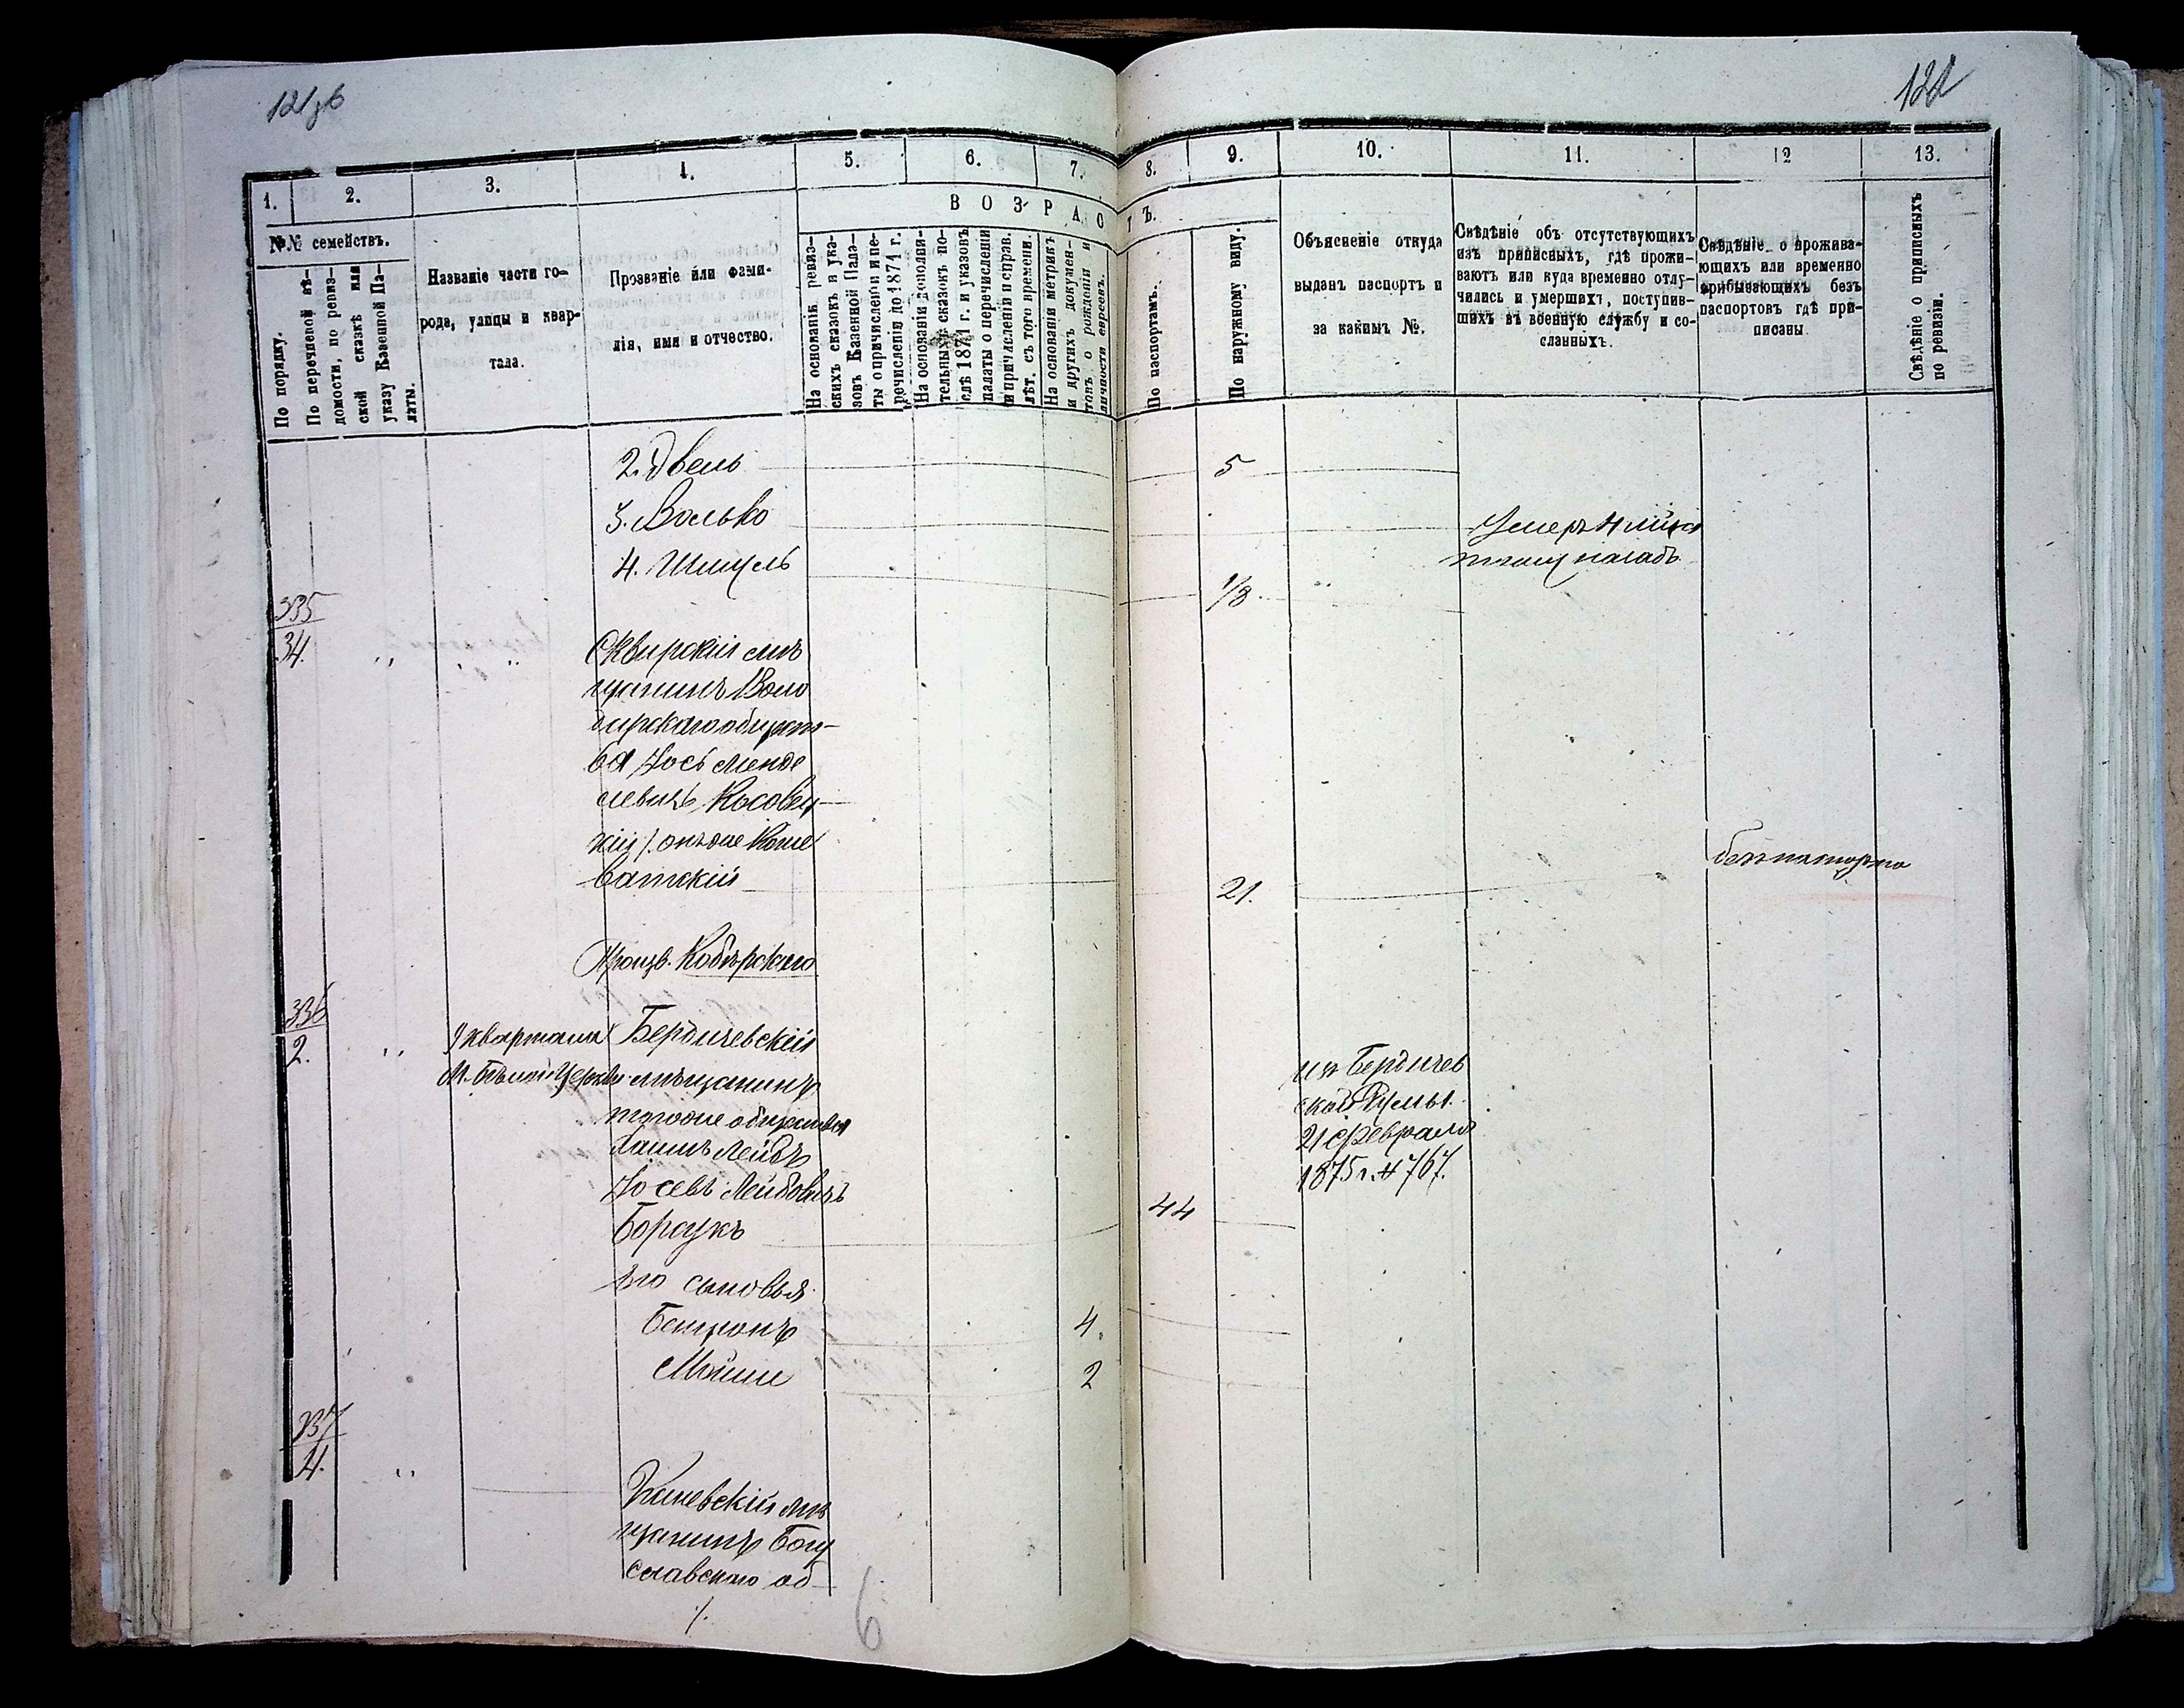 121зв
122
1.
2.
3.
4.
5.
6.
7.
8.
9.
10.
11.
12
13.
ВОЗРАСТЪ.
№№ семействъ.
По порядку.
По перечневой вѣ-
домости, по ревиз-
ской сказкѣ или
указу Казенной Па-
латы.
Названіе части го-
рода, улицы и квар-
тала.
Прозваніе или фами-
лія, имя и отчество.
На основаніи ревиз-
скихъ сказокъ и ука-
зовъ Казенной Пала-
ты о причисленіи и пе-
речисленіи до 1871 г.
На основаніи дополни-
тельныхъ сказокъ по-
слѣ 1871 г. и указовъ
палаты о перечисленіи
и причисленіи и справ.
лѣт. съ того времени.
На основаніи метрикъ
и другихъ докумен-
товъ о рожденіи и
личности евреевъ.
По паспортамъ.
По наружному виду.
Объясненіе откуда
выданъ паспортъ и
за какимъ №.
Свѣдѣніе объ отсутствующихъ
изъ приписныхъ, гдѣ прожи-
ваютъ или куда временно отлу-
чились и умершихъ, поступив-
шихъ въ военную службу и со-
сланныхъ.
Свѣдѣніе о прожива-
ющихъ или временно
прибывающихъ безъ
паспортовъ гдѣ при-
писаны.
Свѣдѣніе о приписныхъ
по ревизіи.
2. Двель 5
3. Волько Умеръ 4
тому назадъ
4. Шмуль 1/8
335
34. Сквирскій мѣ
щанинъ Воло
дарскаго общест-
ва Іось Менде
левичъ Косовец-
кій /. онъ же Коше
ватскій 21.
без паспорта
Произв. Кобѣрскаго
336
2. 9 квартала Бердичевскій
М. Бѣлой Церкви мѣщанинъ
тогоже общества
Хаимъ Лейбъ
Іосевъ Лейбовичъ
Борсукъ 44
из Бердичев
ской Думы
21 февраля
1875 г. № 767.
его сыновья
Бенционъ 4.
Мойше 2
337
4. Каневскій мѣ
щанинъ Богу
славскаго об-
/.
6